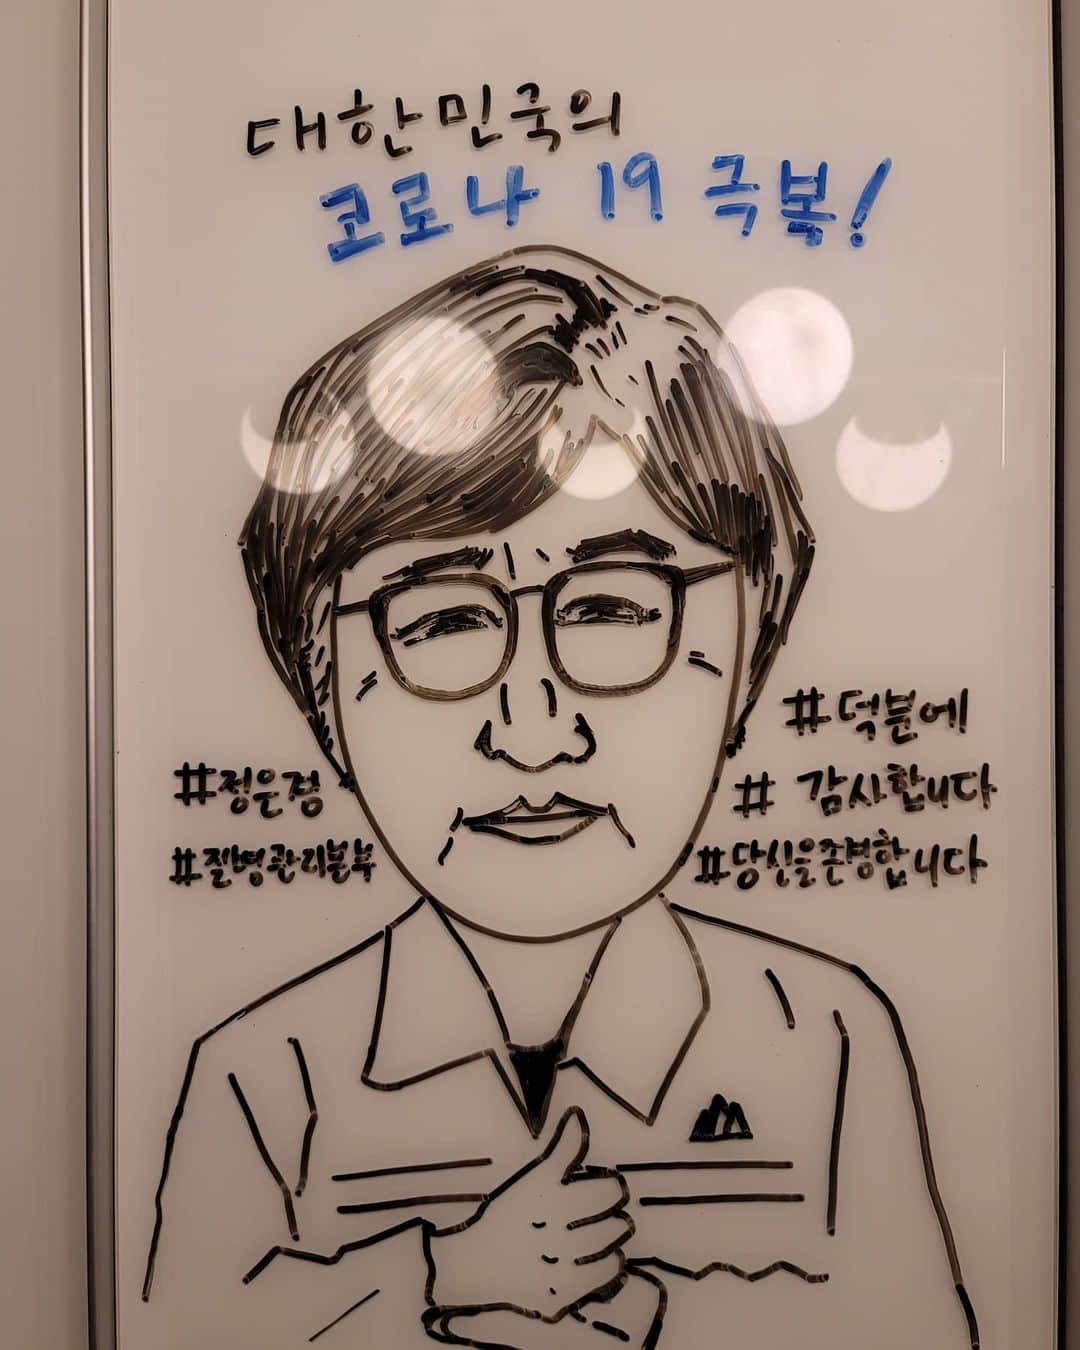 대한민국의
코로나 19 극복!
#덕분에
#정은경
# 감사합니다
#질병관리본부
#당신을존경합니다